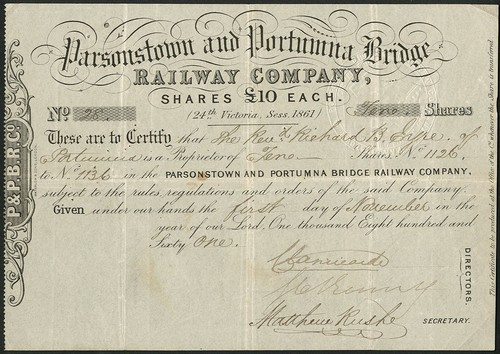 Parsonstown and Portumna Bridge
RAILWAY COMPANY,
SHARES £10 EACH.
(24th Victoria, Sess. 1861)
No. 28. Shares
These are to Certify that The Revd. Richard B. of
Portumna is a Proprietor of Shares No. 1126.
to No. 1136 in the PARSONSTOWN AND PORTUMNA BRIDGE RAILWAY COMPANY,
subject to the rules, regulations and orders of the said Company.
Given under our hands the first day of November in the
year of our Lord, One thousand Eight hundred and
Sixty One.
DIRECTORS.
Matthew SECRETARY.
P & P. B. R. Co.
This Certificate to be produced at the Office of the Co. whenever the Share is transferred.